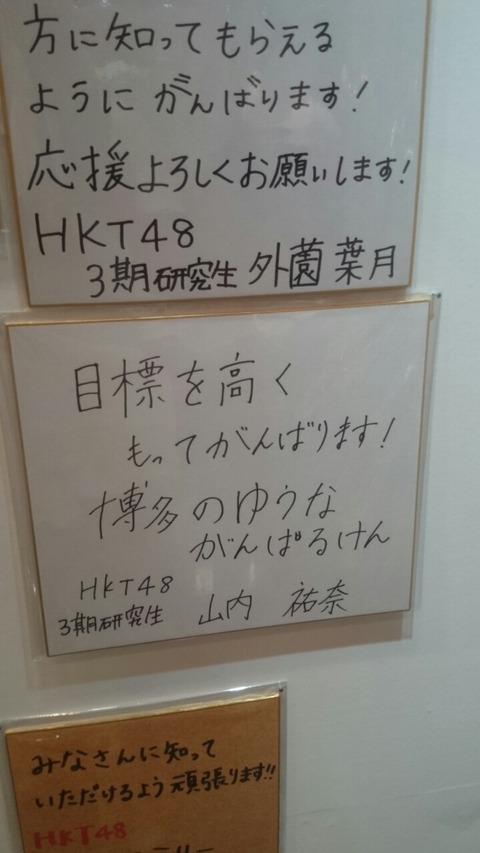 方に知ってもらえる
ようにがんばります!
応援よろしくお願いします!
HKT48
3期研究生 外薗 葉月
目標を高く
もってがんばります!
博多のゆうな
がんばるけん
HKT48
3期研究生 山内 祐奈
みなさんに知って
いただけるよう頑張ります!!
HKT48